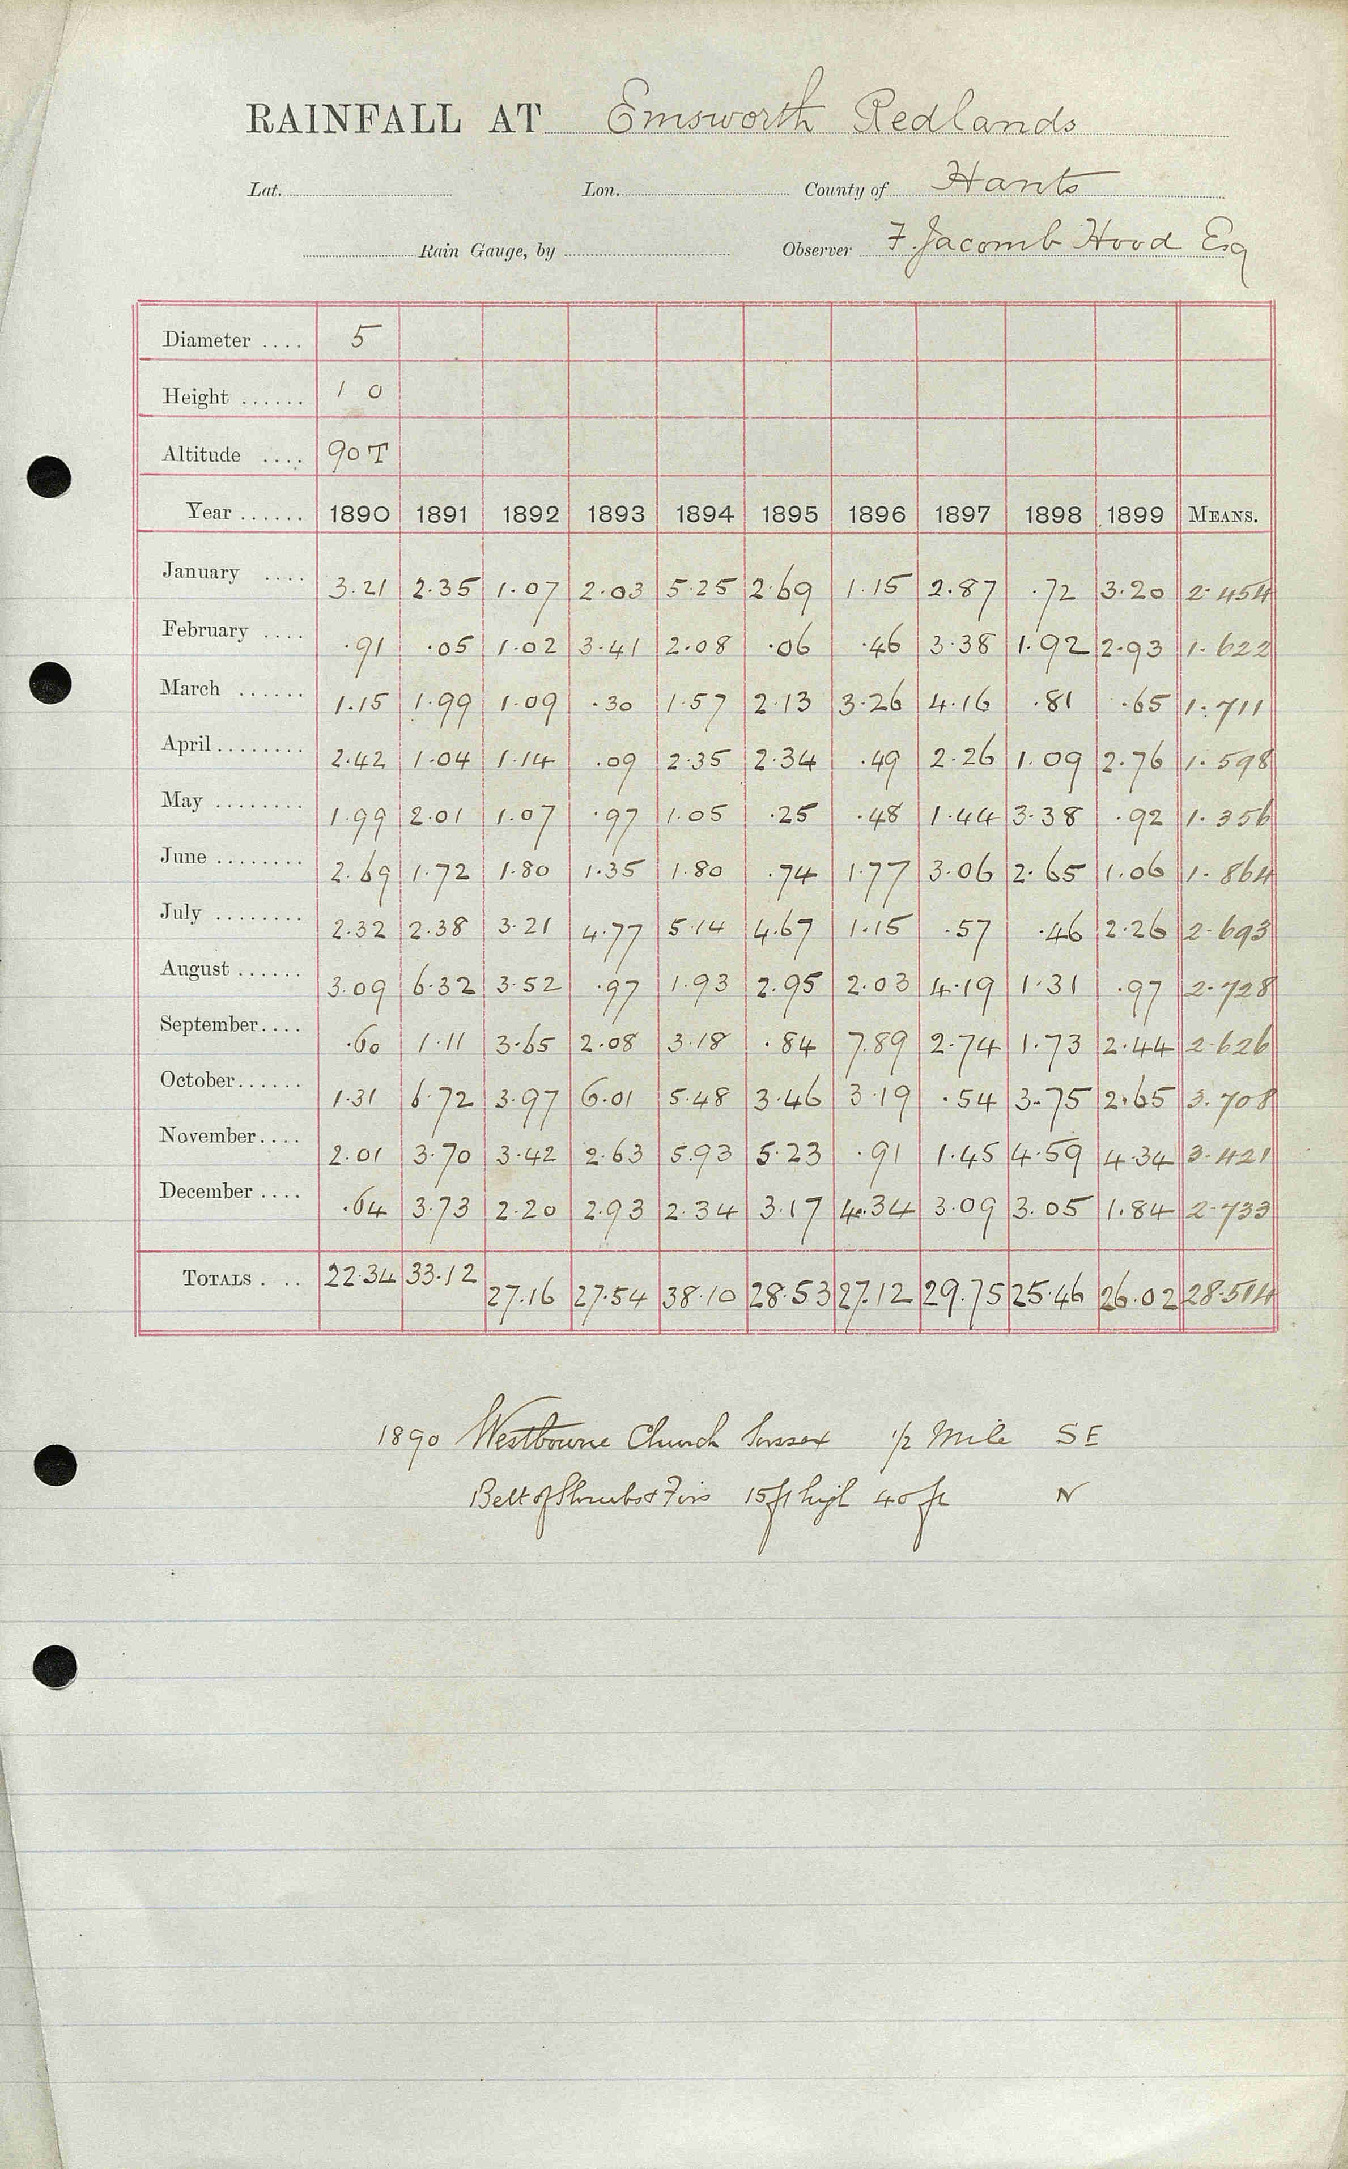 RAINFALL AT Emsworth Redlands
Lat. Lon. County of Hants
Rain Gauge, by Observer F. Jacomb Hood Esq
Diameter .... 5
Height ...... 1 0
Altitude .... 90 T
Year ...... 1890 1891 1892 1893 1894 1895 1896 1897 1898 1899 MEANS.
January .... 3.21 2.35 1.07 2.03 5.25 2.69 1.15 2.87 .72 3.20 2.454
February .... .91 .05 1.02 3.41 2.08 .06 .46 3.38 1.92 2.93 1.622
March ...... 1.15 1.99 1.09 .30 1.57 2.13 3.26 4.16 .81 .65 1.711
April........ 2.42 1.04 1.14 .09 2.35 2.34 .49 2.26 1.09 2.76 1.598
May ........ 1.99 2.01 1.07 .97 1.05 .25 .48 1.44 3.38 .92 1.356
June ........ 2.69 1.72 1.80 1.35 1.80 .74 1.77 3.06 2.65 1.06 1.864
July ........ 2.32 2.38 3.21 4.77 5.14 4.67 1.15 .57 .46 2.26 2.693
August ...... 3.09 6.32 3.52 .97 1.93 2.95 2.03 4.19 1.31 .97 2.728
September.... .60 1.11 3.65 2.08 3.18 .84 7.89 2.74 1.73 2.44 2.626
October...... 1.31 6.72 3.97 6.01 5.48 3.46 3.19 .54 3.75 2.65 3.708
November.... 2.01 3.70 3.42 2.63 5.93 5.23 .91 1.45 4.59 4.34 3.421
December .... .64 3.73 2.20 2.93 2.34 3.17 4.34 3.09 3.05 1.84 2.733
TOTALS . .. 22.34 33.12 27.16 27.54 38.10 28.53 27.12 29.75 25.46 26.02 28.514
1890 Westbourne Church Sussex 1/2 Mile SE
Belt of Shrubs & Firs 15 ft high 40 ft N